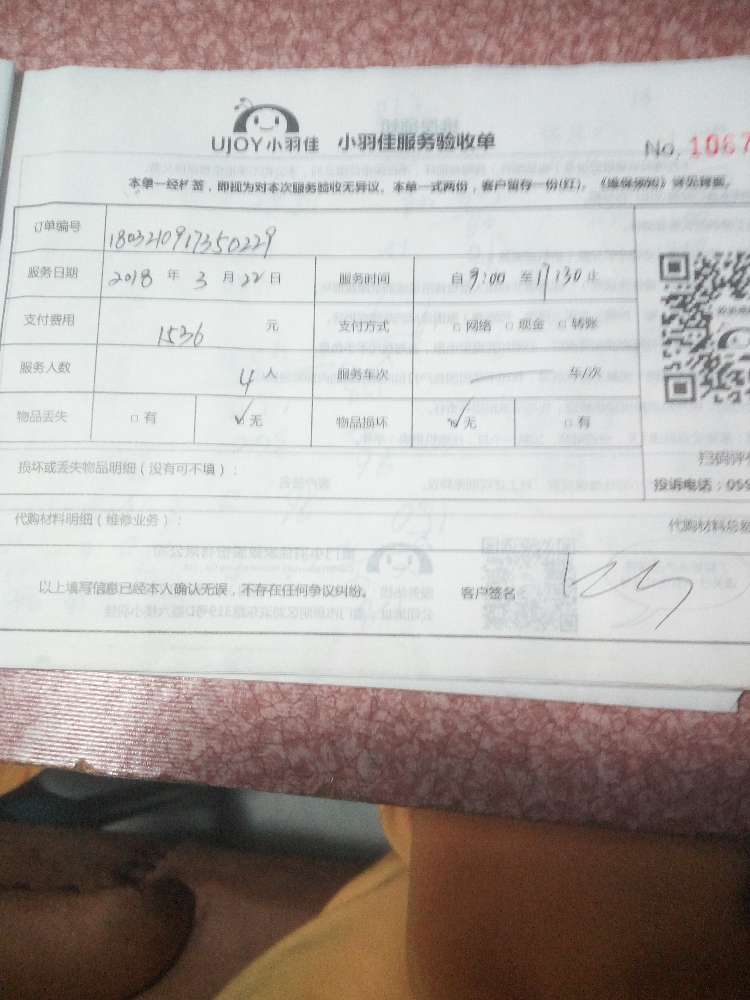 UJOY小羽佳 小羽佳服务验收单 No. 1067
本单一经签,即视为对本次服务验收无异议。本单一式两份,客户留存一份(红)。《维保须知》详见背面。
订单编号 1803210917350229
服务日期 2018 年 3 月 22 日 服务时间 自 9:00 至 17:30 止
支付费用 1536 元 支付方式 □ 网络 □ 现金 □ 转账
服务人数 4 人 服务车次 车/次
物品丢失 □ 有 ☑ 无 物品损坏 ☑ 无 □ 有
损坏或丢失物品明细(没有可不填):
扫码评
投诉电话:059
代购材料明细(维修业务): 代购材料总
以上填写信息已经本人确认无误,不存在任何争议纠纷。 客户签名